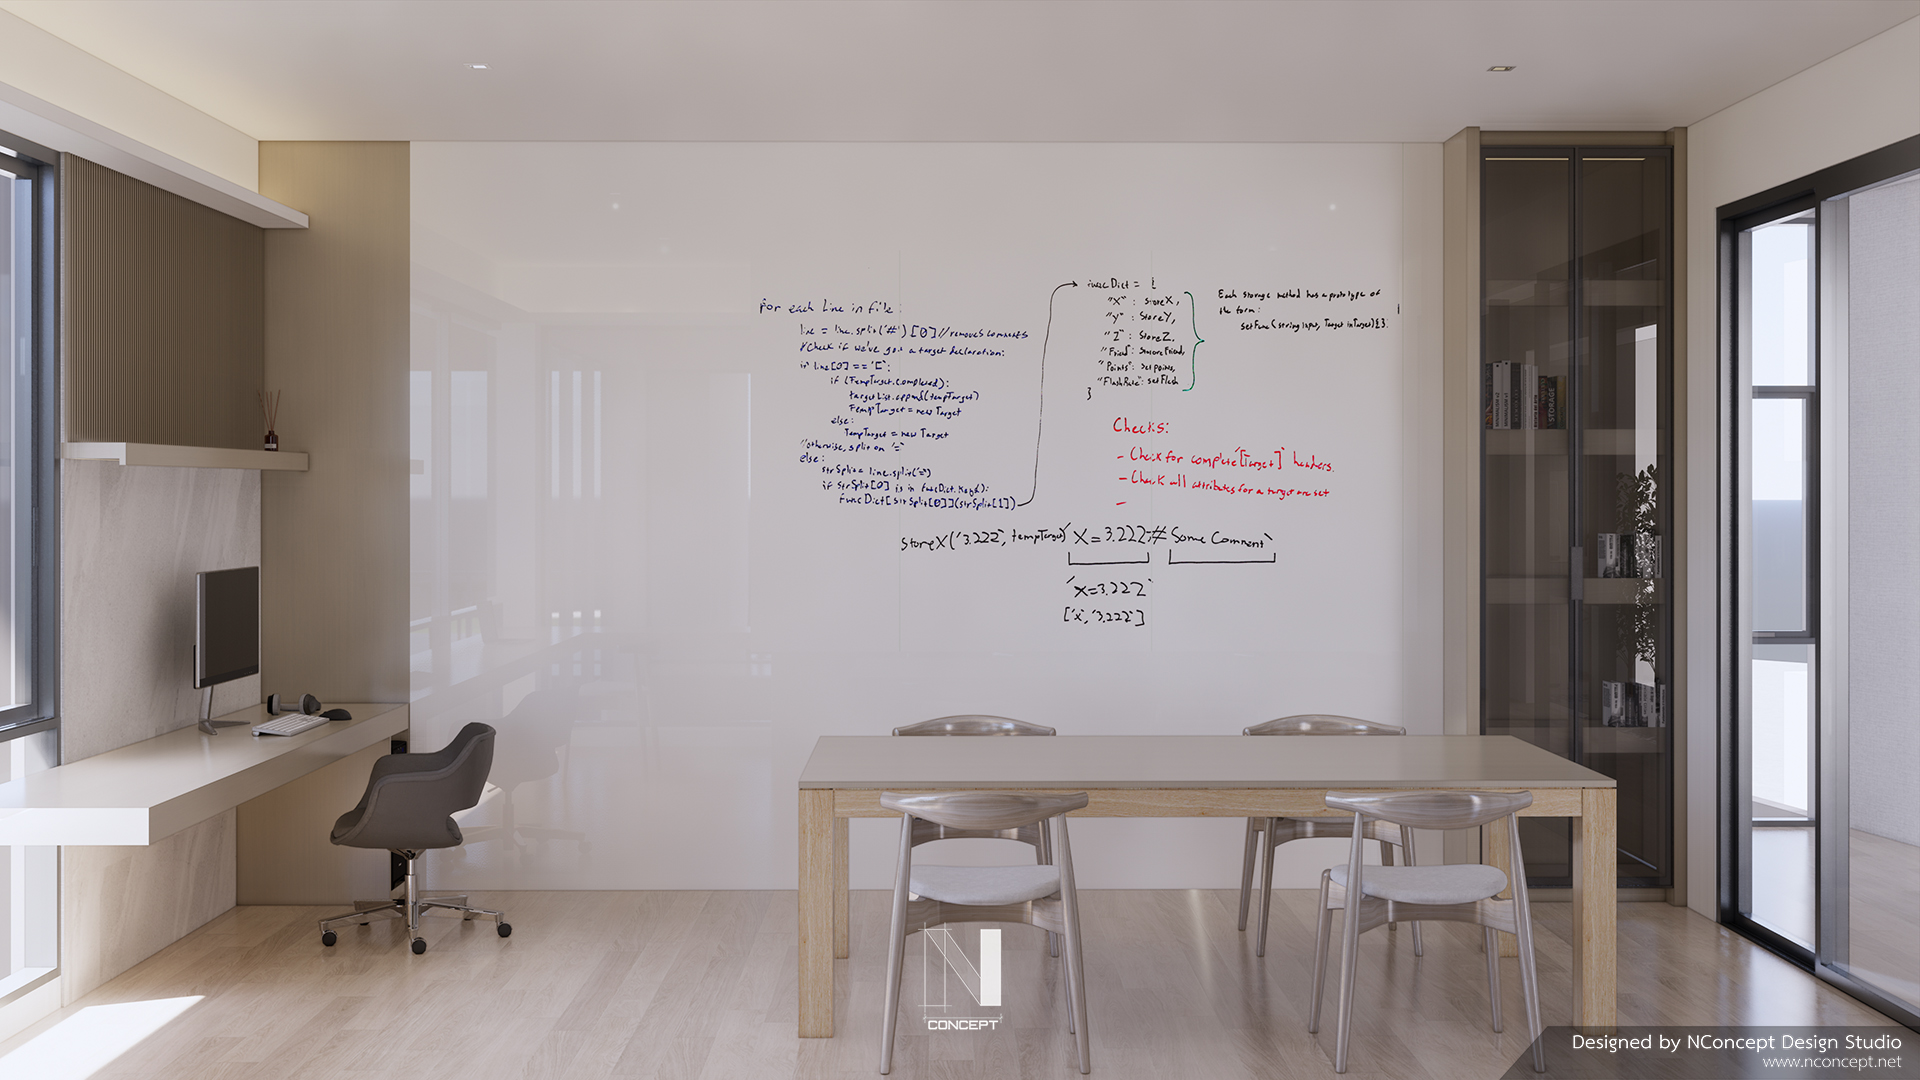 for each line in file:
line = line.split('#')[0] //removes comments
//Check if we've got a target declaration:
if line[0] == '[':
if (TempTarget.completed):
targetList.append(tempTarget)
TempTarget = new Target
else:
TempTarget = new Target
//otherwise, split on '='
else:
strSplit = line.split('=')
if strSplit[0] is in funcDict.keys():
funcDict[strSplit[0]](strSplit[1])
funcDict = {
"X" : storeX,
"Y" : StoreY,
"Z" : StoreZ,
"Friend":
"Points": setpoints,
"FlashRate": setFlash
}
Each storage method has a prototype of
the form:
setFunc(string input, Target inTarget){};
Checks:
- Check for complete '[Target]' headers.
- Check all attributes for a target are set
-
storeX('3.222', tempTarget) 'X=3.222;# Some Comment'
'X=3.222'
['x','3.222']
N
CONCEPT
STORAGE
Designed by NConcept Design Studio
www.nconcept.net